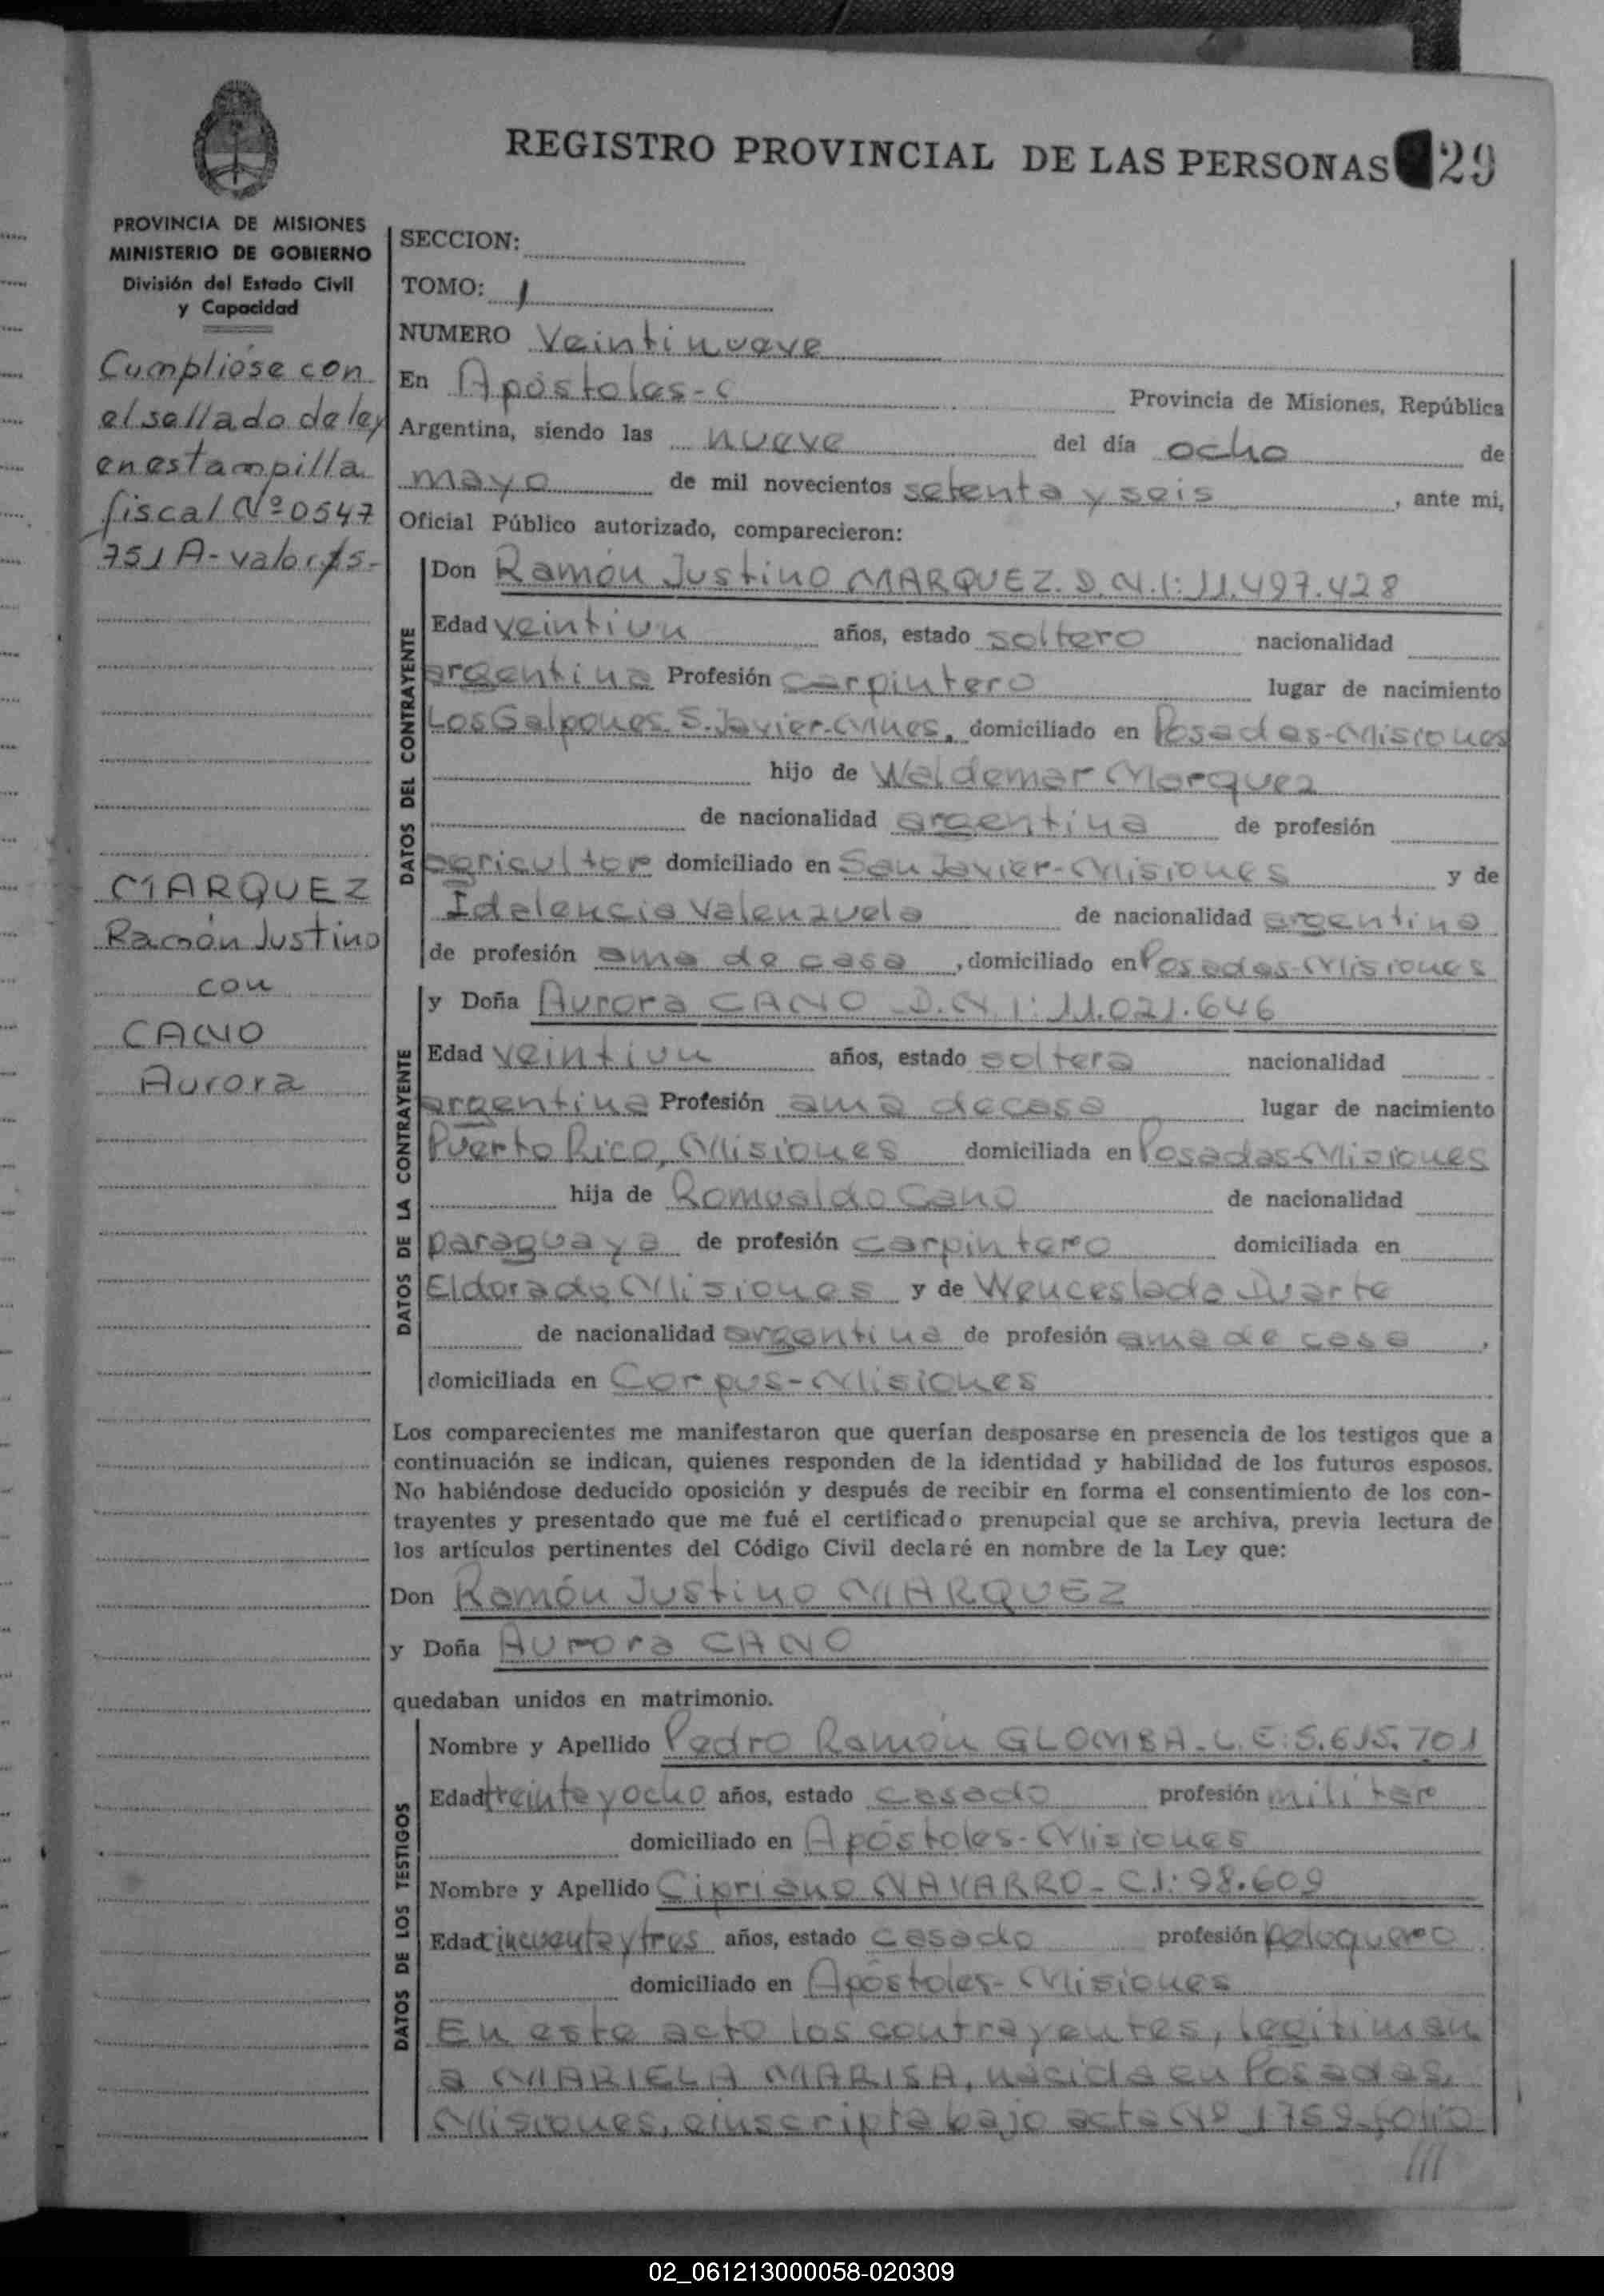 REGISTRO PROVINCIAL DE LAS PERSONAS 29
PROVINCIA DE MISIONES
MINISTERIO DE GOBIERNO
División del Estado Civil
y Capacidad
Cumplióse con
el sellado de ley
en estampilla
fiscal Nº 0547
751 A- valor $5-
MARQUEZ
Ramón Justino
con
CANO
Aurora
SECCION:
TOMO: 1
NUMERO Veintinueve
En Apóstoles-
Provincia de Misiones, República
Argentina, siendo las nueve del día ocho de
mayo de mil novecientos setenta y seis, ante mi,
Oficial Público autorizado, comparecieron:
DATOS DEL CONTRAYENTE
Don Ramón Justino MARQUEZ. D.N.I: 11.497.428
Edad veintiun años, estado soltero nacionalidad
argentina Profesión carpintero lugar de nacimiento
Los Galpones. S. Javier-Mnes, domiciliado en Posadas-Misiones
hijo de Waldemar Marquez
de nacionalidad argentina de profesión
agricultor domiciliado en San Javier-Misiones y de
Idalencia Valenzuela de nacionalidad argentina
de profesión ama de casa, domiciliado en Posadas-Misiones
DATOS DE LA CONTRAYENTE
y Doña Aurora CANO D.N.I: 11.021.646
Edad veintiun años, estado soltera nacionalidad
argentina Profesión ama de casa lugar de nacimiento
Puerto Rico, Misiones domiciliada en Posadas-Misiones
hija de Romualdo Cano de nacionalidad
paraguaya de profesión carpintero domiciliada en
Eldorado Misiones y de Wenceslada Duarte
de nacionalidad argentina de profesión ama de casa,
domiciliada en Corpus-Misiones
Los comparecientes me manifestaron que querían desposarse en presencia de los testigos que a
continuación se indican, quienes responden de la identidad y habilidad de los futuros esposos.
No habiéndose deducido oposición y después de recibir en forma el consentimiento de los con-
trayentes y presentado que me fué el certificado prenupcial que se archiva, previa lectura de
los artículos pertinentes del Código Civil declaré en nombre de la Ley que:
Don Ramón Justino MARQUEZ
y Doña Aurora CANO
quedaban unidos en matrimonio.
DATOS DE LOS TESTIGOS
Nombre y Apellido Pedro Ramón GLOMBA-L.E: 5.615.701
Edad treinta y ocho años, estado casado profesión militar
domiciliado en Apóstoles-Misiones
Nombre y Apellido Cipriano NAVARRO-C.I: 98.609
Edad cincuenta y tres años, estado casado profesión peluquero
domiciliado en Apóstoles-Misiones
En este acto los contrayentes, legitiman
a MARIELA MARISA, nacida en Posadas,
Misiones, e inscripta bajo acta Nº 1759-folio
///
02_061213000058-020309